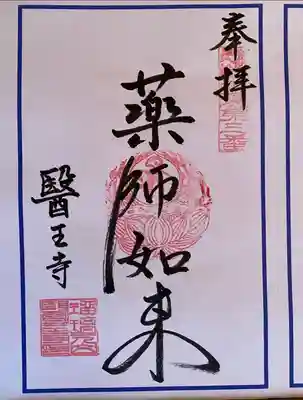 奉拝
薬師如来
醫王寺